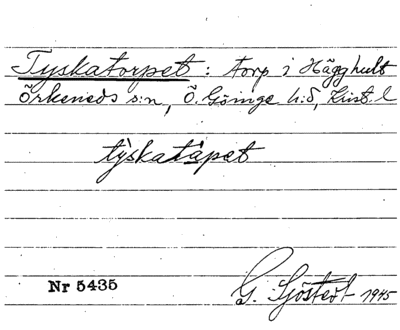 Tyskatorpet : torp i Hägghult
Örkeneds s:n, Ö. Göinge h:d, Krist. l
tỳskatápet
Nr 5435
G. Sjöstedt 1945